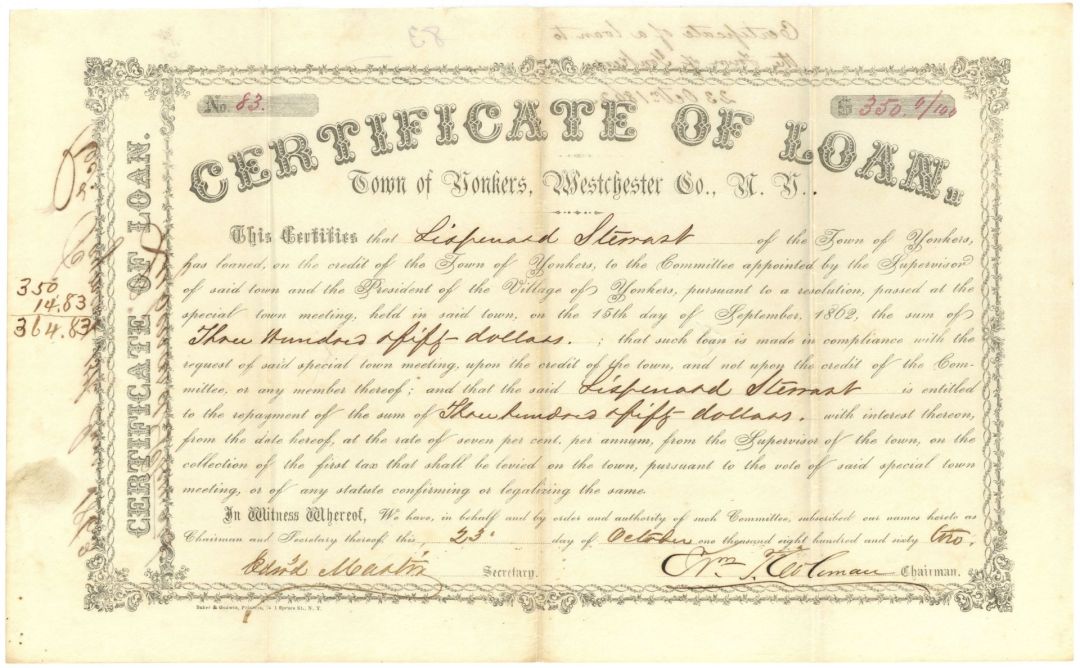 No. 83.
$ 350. 0/100
CERTIFICATE OF LOAN.
Town of Yonkers, Westchester Co., N. Y.
This Certifies that Lispenard Stewart of the Town of Yonkers,
has loaned, on the credit of the Town of Yonkers, to the Committee appointed by the Supervisor
of said town and the President of the Village of Yonkers, pursuant to a resolution, passed at the
special town meeting, held in said town, on the 15th day of September, 1862, the sum of
Three Hundred & fifty dollars. ; that such loan is made in compliance with the
request of said special town meeting, upon the credit of the town, and not upon the credit of the Com-
mittee, or any member thereof; and that the said Lispenard Stewart is entitled
to the repayment of the sum of Three hundred & fifty dollars. with interest thereon,
from the date hereof, at the rate of seven per cent. per annum, from the Supervisor of the town, on the
collection of the first tax that shall be levied on the town, pursuant to the vote of said special town
meeting, or of any statute confirming or legalizing the same.
In Witness Whereof, We have, in behalf and by order and authority of such Committee, subscribed our names hereto as
Chairman and Secretary thereof, this 23d day of October one thousand eight hundred and sixty two.
Edw'd Martin Secretary.
Wm Coleman Chairman.
Baker & Godwin, Printers, No 1 Spruce St., N. Y.
CERTIFICATE OF LOAN.
350
14.83
364.83
Certificate of a loan to
83